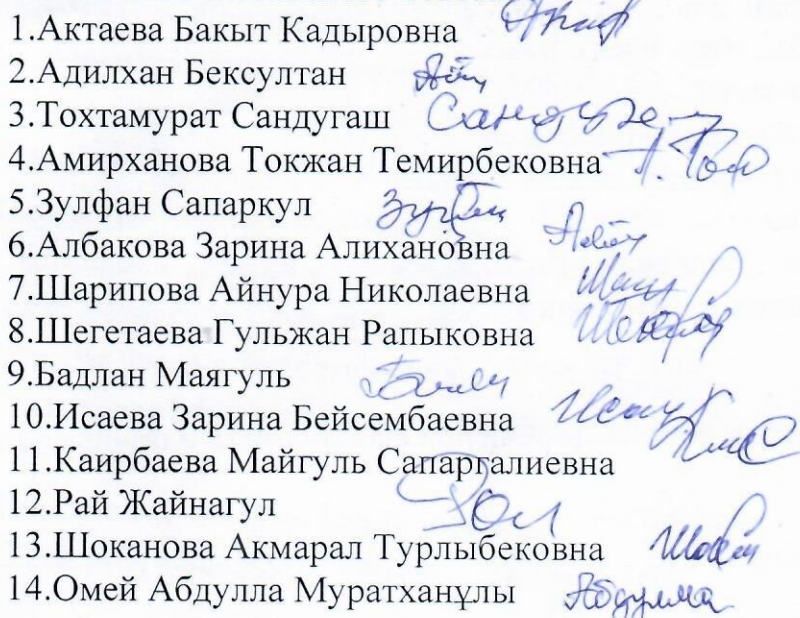 1.Актаева Бакыт Кадыровна
2.Адилхан Бексултан
3.Тохтамурат Сандугаш
4.Амирханова Токжан Темирбековна
5.Зулфан Сапаркул
6.Албакова Зарина Алихановна
7.Шарипова Айнура Николаевна
8.Шегетаева Гульжан Рапыковна
9.Бадлан Маягуль
10.Исаева Зарина Бейсембаевна
11.Каирбаева Майгуль Сапаргалиевна
12.Рай Жайнагул
13.Шоканова Акмарал Турлыбековна
14.Омей Абдулла Муратханұлы